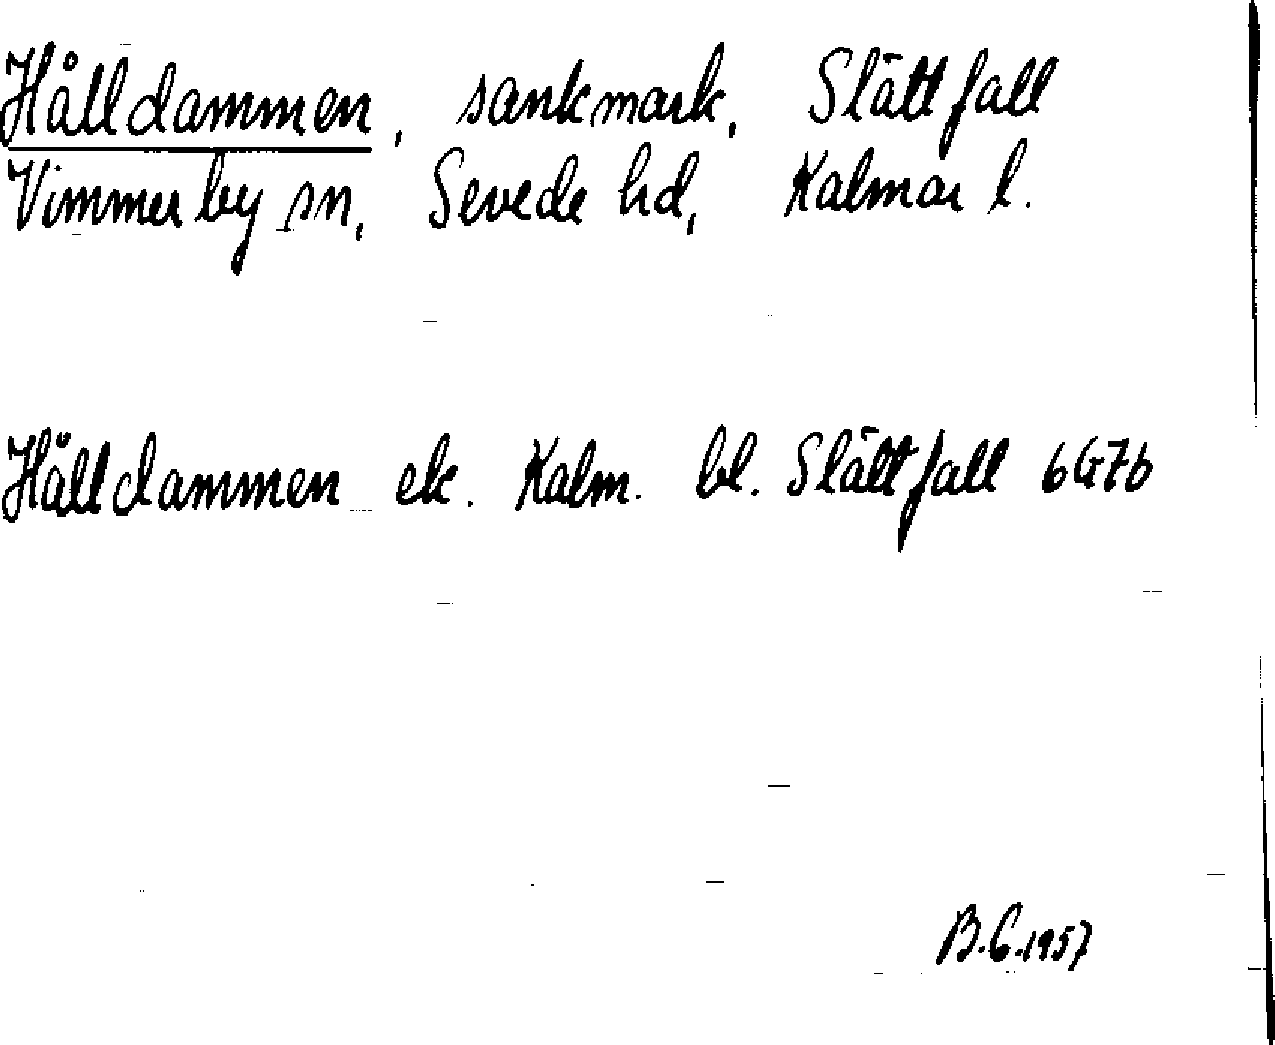 Hålldammen, sankmark, Slättfall
Vimmerby sn, Sevede hd, Kalmar l.
Hålldammen ek. Kalm. bl. Slättfall 6G7b
B.G.1957